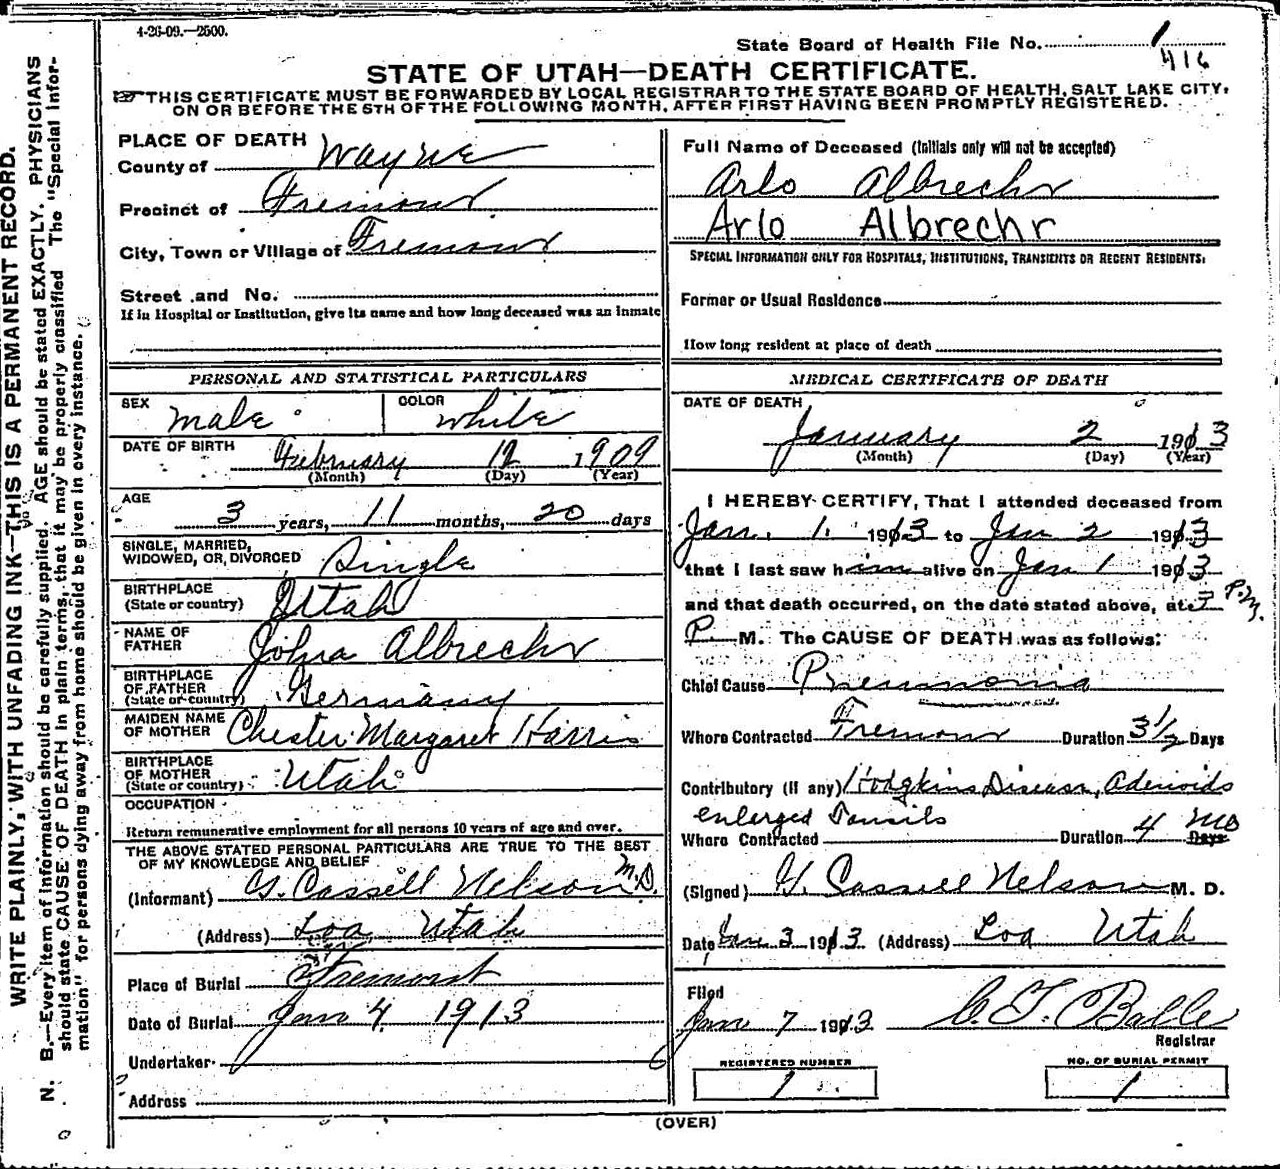 4-26-09.—2500.
State Board of Health File No. 1
416
STATE OF UTAH—DEATH CERTIFICATE.
THIS CERTIFICATE MUST BE FORWARDED BY LOCAL REGISTRAR TO THE STATE BOARD OF HEALTH, SALT LAKE CITY,
ON OR BEFORE THE 5TH OF THE FOLLOWING MONTH, AFTER FIRST HAVING BEEN PROMPTLY REGISTERED.
WRITE PLAINLY, WITH UNFADING INK—THIS IS A PERMANENT RECORD.
N. B.—Every item of information should be carefully supplied. AGE should be stated EXACTLY. PHYSICIANS
should state CAUSE OF DEATH in plain terms, that it may be properly classified The "Special Infor-
mation" for persons dying away from home should be given in every instance.
PLACE OF DEATH
County of Wayne
Precinct of Fremont
City, Town or Village of Fremont
Street and No.
If in Hospital or Institution, give its name and how long deceased was an inmate
Full Name of Deceased (Initials only will not be accepted)
Arlo Albrecht
Arlo Albrechr
SPECIAL INFORMATION ONLY FOR HOSPITALS, INSTITUTIONS, TRANSIENTS OR RECENT RESIDENTS:
Former or Usual Residence
How long resident at place of death
PERSONAL AND STATISTICAL PARTICULARS
SEX male COLOR white
DATE OF BIRTH February 12 1909
(Month) (Day) (Year)
AGE
3 years, 11 months, 20 days
SINGLE, MARRIED,
WIDOWED, OR, DIVORCED Single
BIRTHPLACE
(State or country) Utah
NAME OF
FATHER John Albrecht
BIRTHPLACE
OF FATHER
(State or country) Germany
MAIDEN NAME
OF MOTHER Chester Margaret Harris
BIRTHPLACE
OF MOTHER
(State or country) Utah
OCCUPATION
Return remunerative employment for all persons 10 years of age and over.
THE ABOVE STATED PERSONAL PARTICULARS ARE TRUE TO THE BEST
OF MY KNOWLEDGE AND BELIEF
(Informant) G. Cassell Nelson M.D.
(Address) Loa Utah
Place of Burial Fremont
Date of Burial Jan 4 1913
Undertaker
Address
MEDICAL CERTIFICATE OF DEATH
DATE OF DEATH
January 2 1913
(Month) (Day) (Year)
I HEREBY CERTIFY, That I attended deceased from
Jan. 1. 1913 to Jan 2 1913
that I last saw him alive on Jan 1 1913
and that death occurred, on the date stated above, at P.M.
P M. The CAUSE OF DEATH was as follows:
Chief Cause Pneumonia
Where Contracted Fremont Duration 3 1/2 Days
Contributory (if any) Hodgkins Disease, Adenoids
enlarged Tonsils
Where Contracted Duration 4 mo Days
(Signed) G. Cassell Nelson M. D.
Date Jan 3 1913 (Address) Loa Utah
Filed
Jan 7 1913
Registrar
REGISTERED NUMBER
1
NO. OF BURIAL PERMIT
1
(OVER)